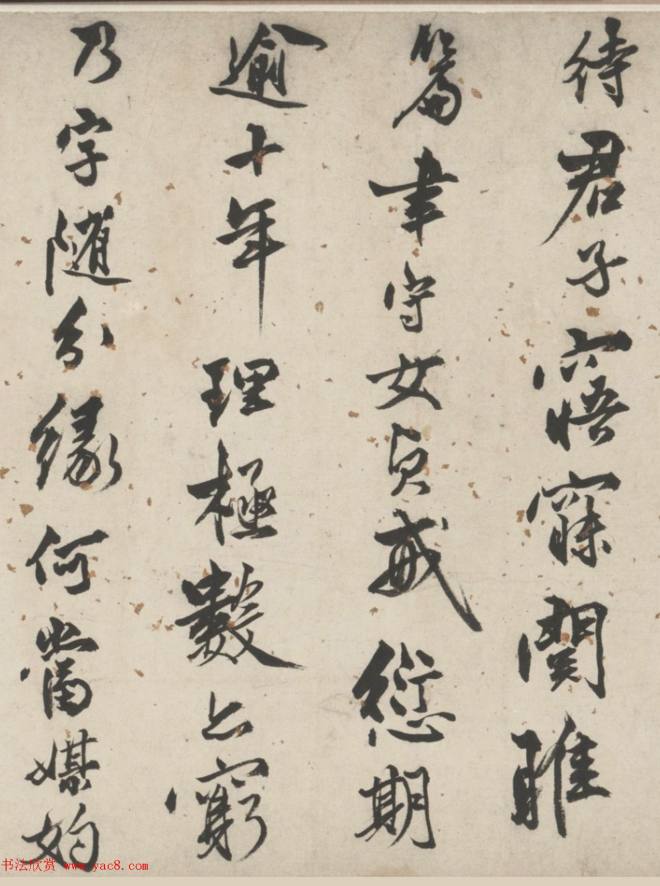 待君子寤寐關雎
篇聿守女貞戒愆期
逾十年理極數亦窮
乃字隨分緣何當媒妁
书法欣赏 www.yac8.com